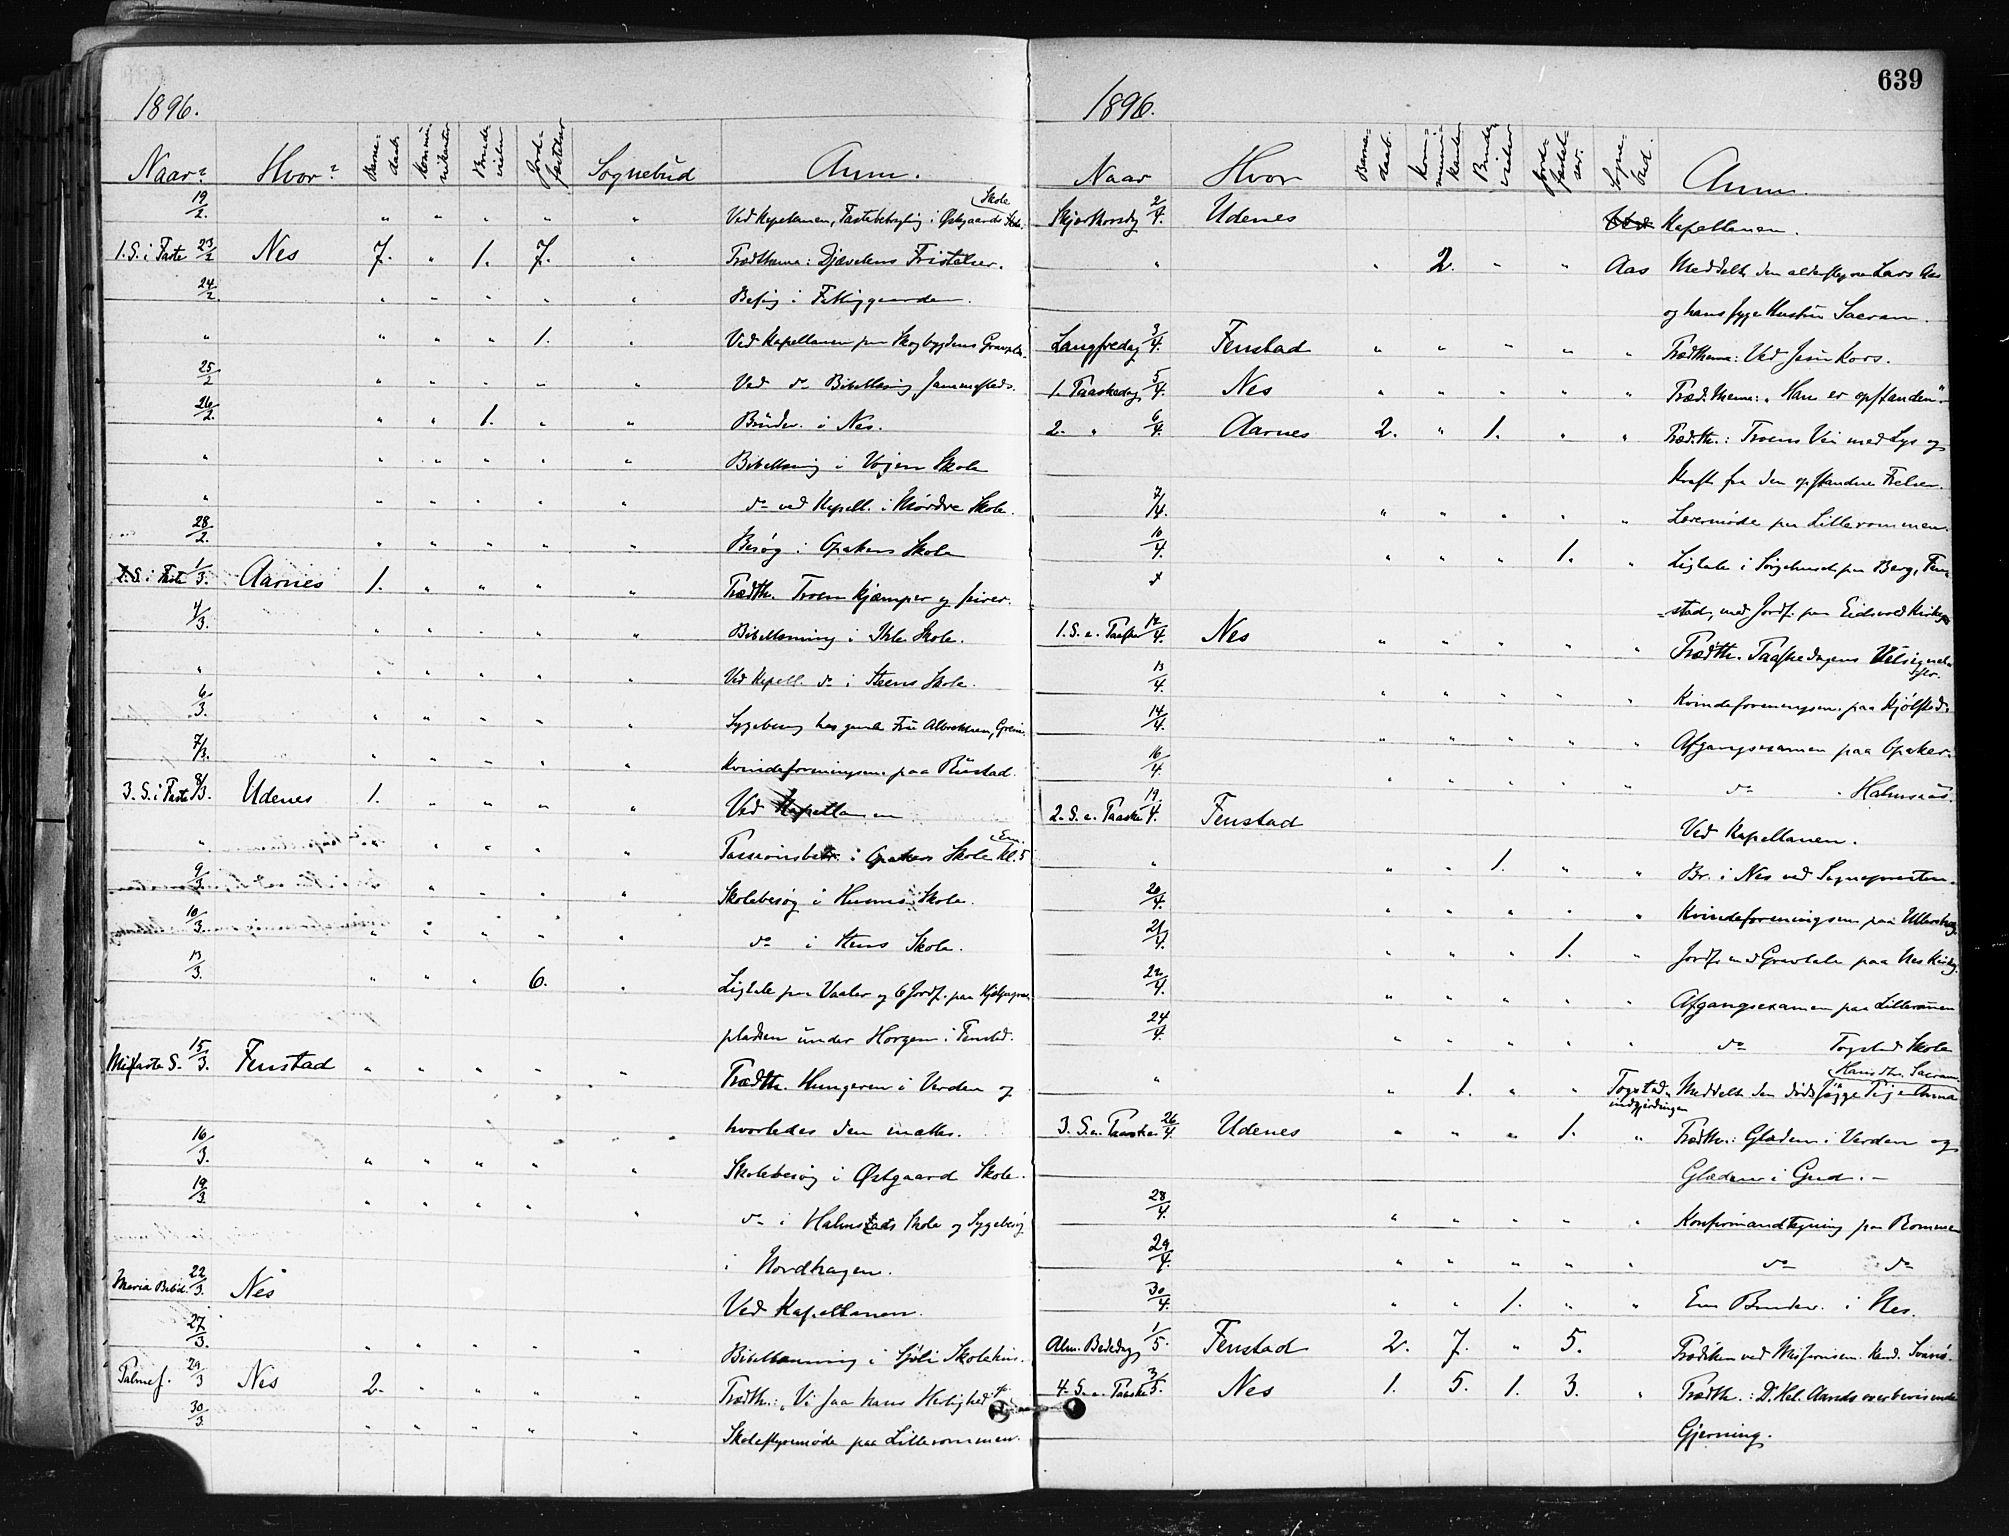 1896.
Naar? Hvor? Barne- daab. Kommu- nikanter Brude- vielser Jord- fæstelser Sognebud Anm.
19/2. " " " " " Ved Kapellanen, i Østgaards Skole
1. S. i Faste 23/2 Nes 7. " 1. 7. " Prædthema: Djævelens Fristelser.
24/2 " " " " " Besøg i Fattiggaarden.
" " " " 1. " Ved Kapellanen paa Skogbygdens Gravpl.
25/2 " " " " " Ved do Bibellæsning sammesteds.
26/2. " " 1. " " Brudev. i Nes.
" " " " " " Bibellæsning i Vojen Skole
" " " " " " do ved Kapell. i Mordre Skole.
28/2. " " " " " Besøg i Opakers Skole
2. S. i Faste 1/3. Aarnes 1. " " " " Prædth. Troen kjæmper og seirer.
4/3. " " " " " Bibellæsning i Skole.
" " " " " " Ved Kapell. do i Steens Skole.
6/3. " " " " " Sygebesøg hos gamle Fru
7/3. " " " " " Kvindeforeningsm. paa Rustad.
3. S. i Faste 8/3. Udenes 1. " " " " Ved Kapellanen
" " " " " i Opakers Skole Em. Kl. 5
9/3. " " " " Skolebesøg i Huums Skole.
10/3. " " " " " do i Stens Skole.
13/3. " " " 6. " Ligtale paa Vaaler og 6 Jordf. paa
pladsen under Horgen i Fenstad.
Midfaste S. 15/3. Fenstad " " " " " Prædth. Hungeren i Verden og
hvorledes den mættes.
16/3. " " " " " Skolebesøg i Østgaard Skole.
19/3. " " " " " do i Halmstads Skole og Sygebesøg
i Nordhagen.
Maria Bebud. 22/3. Nes Ved Kapellanen.
27/3. " " " " " Bibellæsning i Skolehus.
Palmes. 29/3 Nes 2. " " " " Prædth.: "Vi saa hans Herlighed"
30/3. " " " " " Skolestyremøde paa Lillerommen.
639
1896.
Naar Hvor Barne- daab. Kom- muni- kanter Brude- vielser Jord- fæstel- ser. Sogne- bud. Anm.
Skjærthorsdg 2/4. Udenes Kapellanen.
" " 2. " " Aas Meddelt den Lars Aas
og hans syge Hustru Sacram.
Langfredag 3/4. Fenstad " " " " " Prædthema: Ved Jesu Kors.
1. Paaskedag 5/4. Nes " " " " " Præd. thema: "Han er opstanden".
2. " 6/4. Aarnes 2. " 1. " " Præd. th.: Troens Vei med Lys og
Kraft fra den opstandne Frelser.
7/4. " " " " " Lærermøde paa Lillerommen.
10/4. " " " 1. " Ligtale i Sørgehuset paa Berg, Fen-
stad, med Jordf. paa Eidsvold Kirkeg.
1. S. e. Paaske 12/4. Nes " " " " " Prædth. Paaskedagens Velsignelser.
13/4. " " " " " Kvindeforeningsm. paa Kjølstad.
14/4. " " " " " Afgangsexamen paa Opaker.
16/4. " " " " " do Halmsaas.
2. S. e. Paaske 19/4. Fenstad Ved Kapellanen.
" " " 1. " " Br. i Nes ved Sognepresten.
20/4. " " " " " Kvindeforeningsm. paa
21/4. " " " 1. " Jordf. med Gravtale paa Nes Kirkg.
22/4. " " " " " Afgangsexamen paa Lillerommen
24/4. " " " " " do Fogstad Skole
" " 1. " " Fogstad- indgjerdingen Meddelt den dødssyge Pige Anna Hansdtr. Sacram.
3. S. e. Paaske 26/4. Udenes " " " 1. " Prædth.: Glæden i Verden og
Glæden i Gud. -
28/4. " " " " " Konfirmandtegning paa Rommen
29/4. " " " " " do do
30/4. " " 1. " " En Brudev. i Nes.
Alm. Bededag 1/5. Fenstad 2. 7. " 5. Prædiken ved Missionsm. Kand.
4. S. e. Paaske 3/5. Nes 1. 5. 1. 3. " Prædth.: D. Hel. Aands overbevisende
Gjerning.